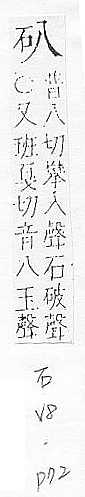 矵
普八切攀入聲石破聲
〇又班戛切音八玉聲
石
V8
.
P72